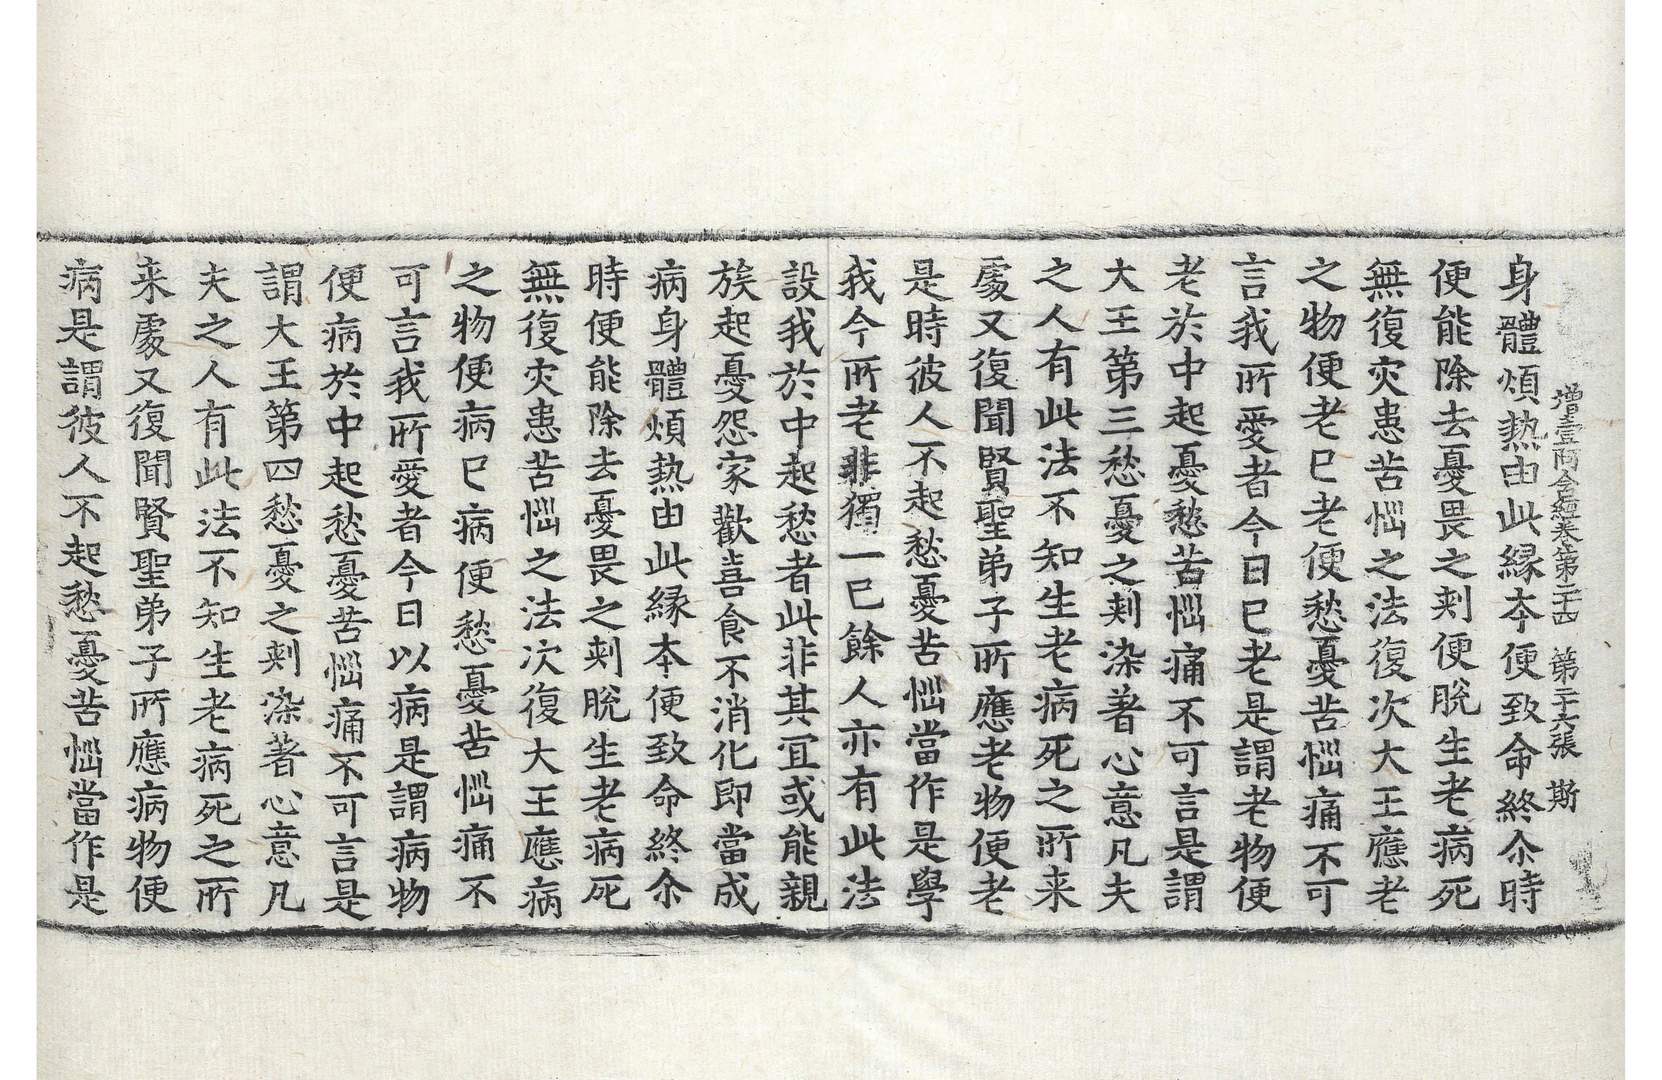 增壹阿含經卷第二十四　第二十六張　斯
身體煩熱由此縁夲便致命終尒時
便能除去憂畏之刾便脫生老病死
無復灾患苦惱之法復次大王應老
之物便老巳老便愁憂苦惱痛不可
言我所愛者今日巳老是謂老物便
老於中起憂愁苦惱痛不可言是謂
大王第三愁憂之刾染著心意凡夫
之人有此法不知生老病死之所来
處又復聞賢聖弟子所應老物便老
是時彼人不起愁憂苦惱當作是學
我今所老非獨一巳餘人亦有此法
設我於中起愁者此非其冝或能親
族起憂怨家歡喜食不消化即當成
病身體煩熱由此縁夲便致命終尒
時便能除去憂畏之刾脫生老病死
無復灾患苦惱之法次復大王應病
之物便病巳病便愁憂苦惱痛不
可言我所愛者今日以病是謂病物
便病於中起愁憂苦惱痛不可言是
謂大王第四愁憂之刾染著心意凡
夫之人有此法不知生老病死之所
来處又復聞賢聖弟子所應病物便
病是謂彼人不起愁憂苦惱當作是